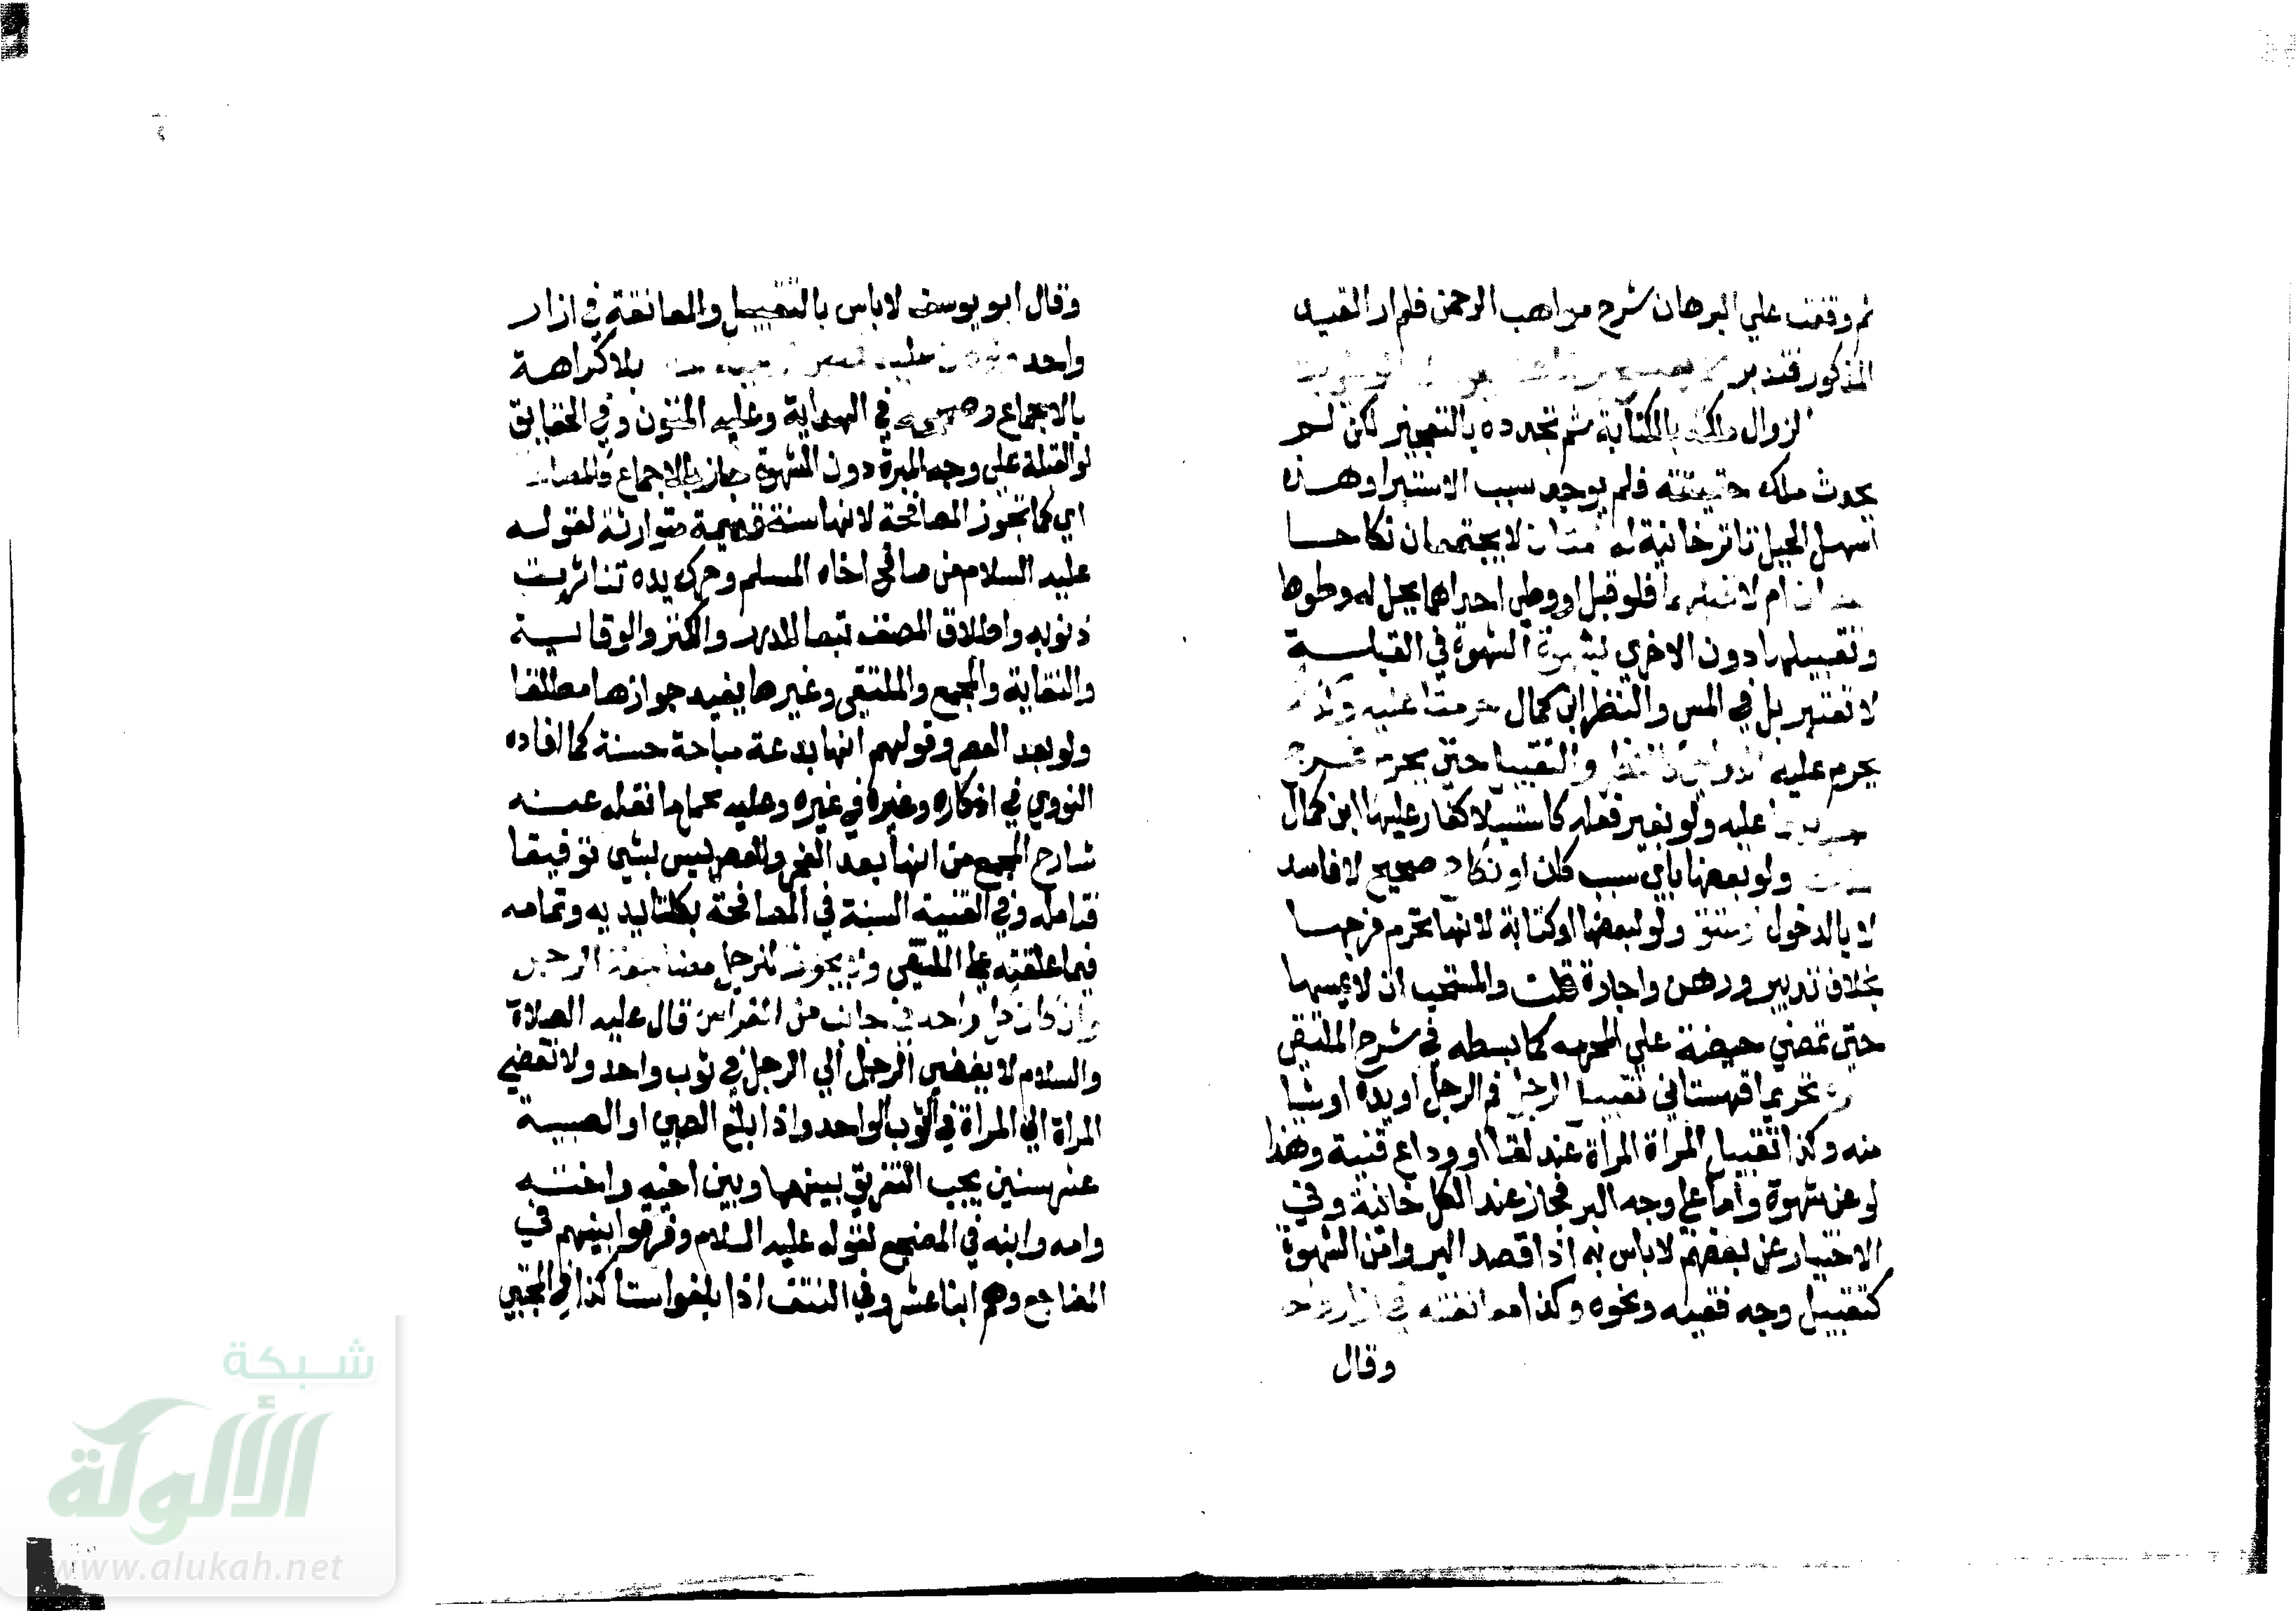 ثم وقفت علي البرهان شرح مواهب الرحمن فلم ار القيد
المذكور فتدبر
لزوال ملكه بالكتابة ثم تجدده بالتعجيز لكن لم
يحدث ملك حقيقة فلم يوجد سبب الاستبرا وهذه
اسهل الحيل تاتارخانية له لا يجتمعان نكاحا
ام لا فلو قبل او وطي احداهما يحل له وطوها
وتقبيلها دون الاخري بشهوة الشهوة في القبلة
لا تعتبر بل في المس والنظر ابن كمال حرمتا عليه وكذا
يحرم عليه الدواعي كالنظر والتقبيل حتي يحرم فرج
عليه ولو بغير فعله كاستيلا كفار عليها ابن كمال
ولو بعضها باي سبب كان او نكاح صحيح لا فاسد
لا بالدخول او عتق ولو لبعضها او كتابة لانها تحرم فرجها
بخلاف تدبير ورهن واجارة قلت والمستحب ان لا يمسها
حتي تمضي حيضة علي المحرمه كما بسطه في شرح الملتقي
تحريما قهستاني تقبيل الرجل فم الرجل او يده او شيا
منه وكذا تقبيل المراة المراة عند لقا او وداع قنية وهذا
لو عن شهوة واما علي وجه البر فجاز عند الكل خانية وفي
الاختيار عن بعضهم لا باس به اذا قصد البر وامن الشهوة
كتقبيل وجه فقيه ونحوه وكذا معانقته في ازار واحد
وقال
وقال ابو يوسف لا باس بالتقبيل والمعانقة في ازار
واحد بلا كراهة
بالاجماع وصححه في الهداية وعليه المتون وفي الحقايق
لو القبلة علي وجه المبرة دون الشهوة جاز بالاجماع كالمصافحة
اي كما تجوز المصافحة لانها سنة قديمة متوارثة لقوله
عليه السلام من صافح اخاه المسلم وحرك يده تناثرت
ذنوبه واطلاق المصنف تبعا للدرر والكنز والوقاية
والنقاية والمجمع والملتقي وغيرها يفيد جوازها مطلقا
ولو بعد العصر وقولهم انها بدعة مباحة حسنة كما افاده
النووي في اذكاره وغيره في غيره وعليه يحمل ما نقله عنه
شارح المجمع من انها بعد الفجر والعصر ليس بشي توفيقا
فتامله وفي القنية السنة في المصافحة بكلتا يديه وتمامه
فيما علقته علي الملتقي ولا يجوز للرجل مضاجعة الرجل
وان كان كل واحد في جانب من الفراش قال عليه الصلاة
والسلام لا يفضي الرجل الي الرجل في ثوب واحد ولا تفضي
المراة الي المراة في الثوب الواحد واذا بلغ الصبي او الصبية
عشر سنين يجب التفريق بينهما وبين اخيه واخته
وامه وابيه في المضجع لقوله عليه السلام وفرقوا بينهم في
المضاجع وهم ابنا عشر وفي النتف اذا بلغوا ستا كذا في المجتبي
شبكة
الألوكة
www.alukah.net